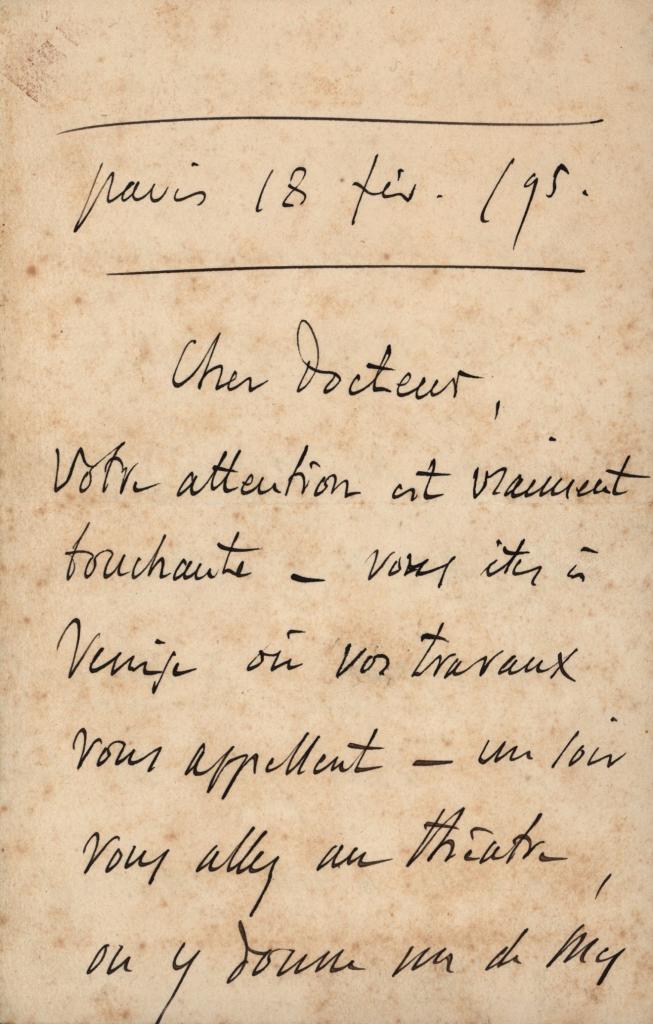 Paris 18 fév. /95.
Cher Docteur,
Votre attention est vraiment
touchante – vous êtes à
Venise où vos travaux
vous appellent – un soir
vous allez au théâtre,
on y donne une de mes